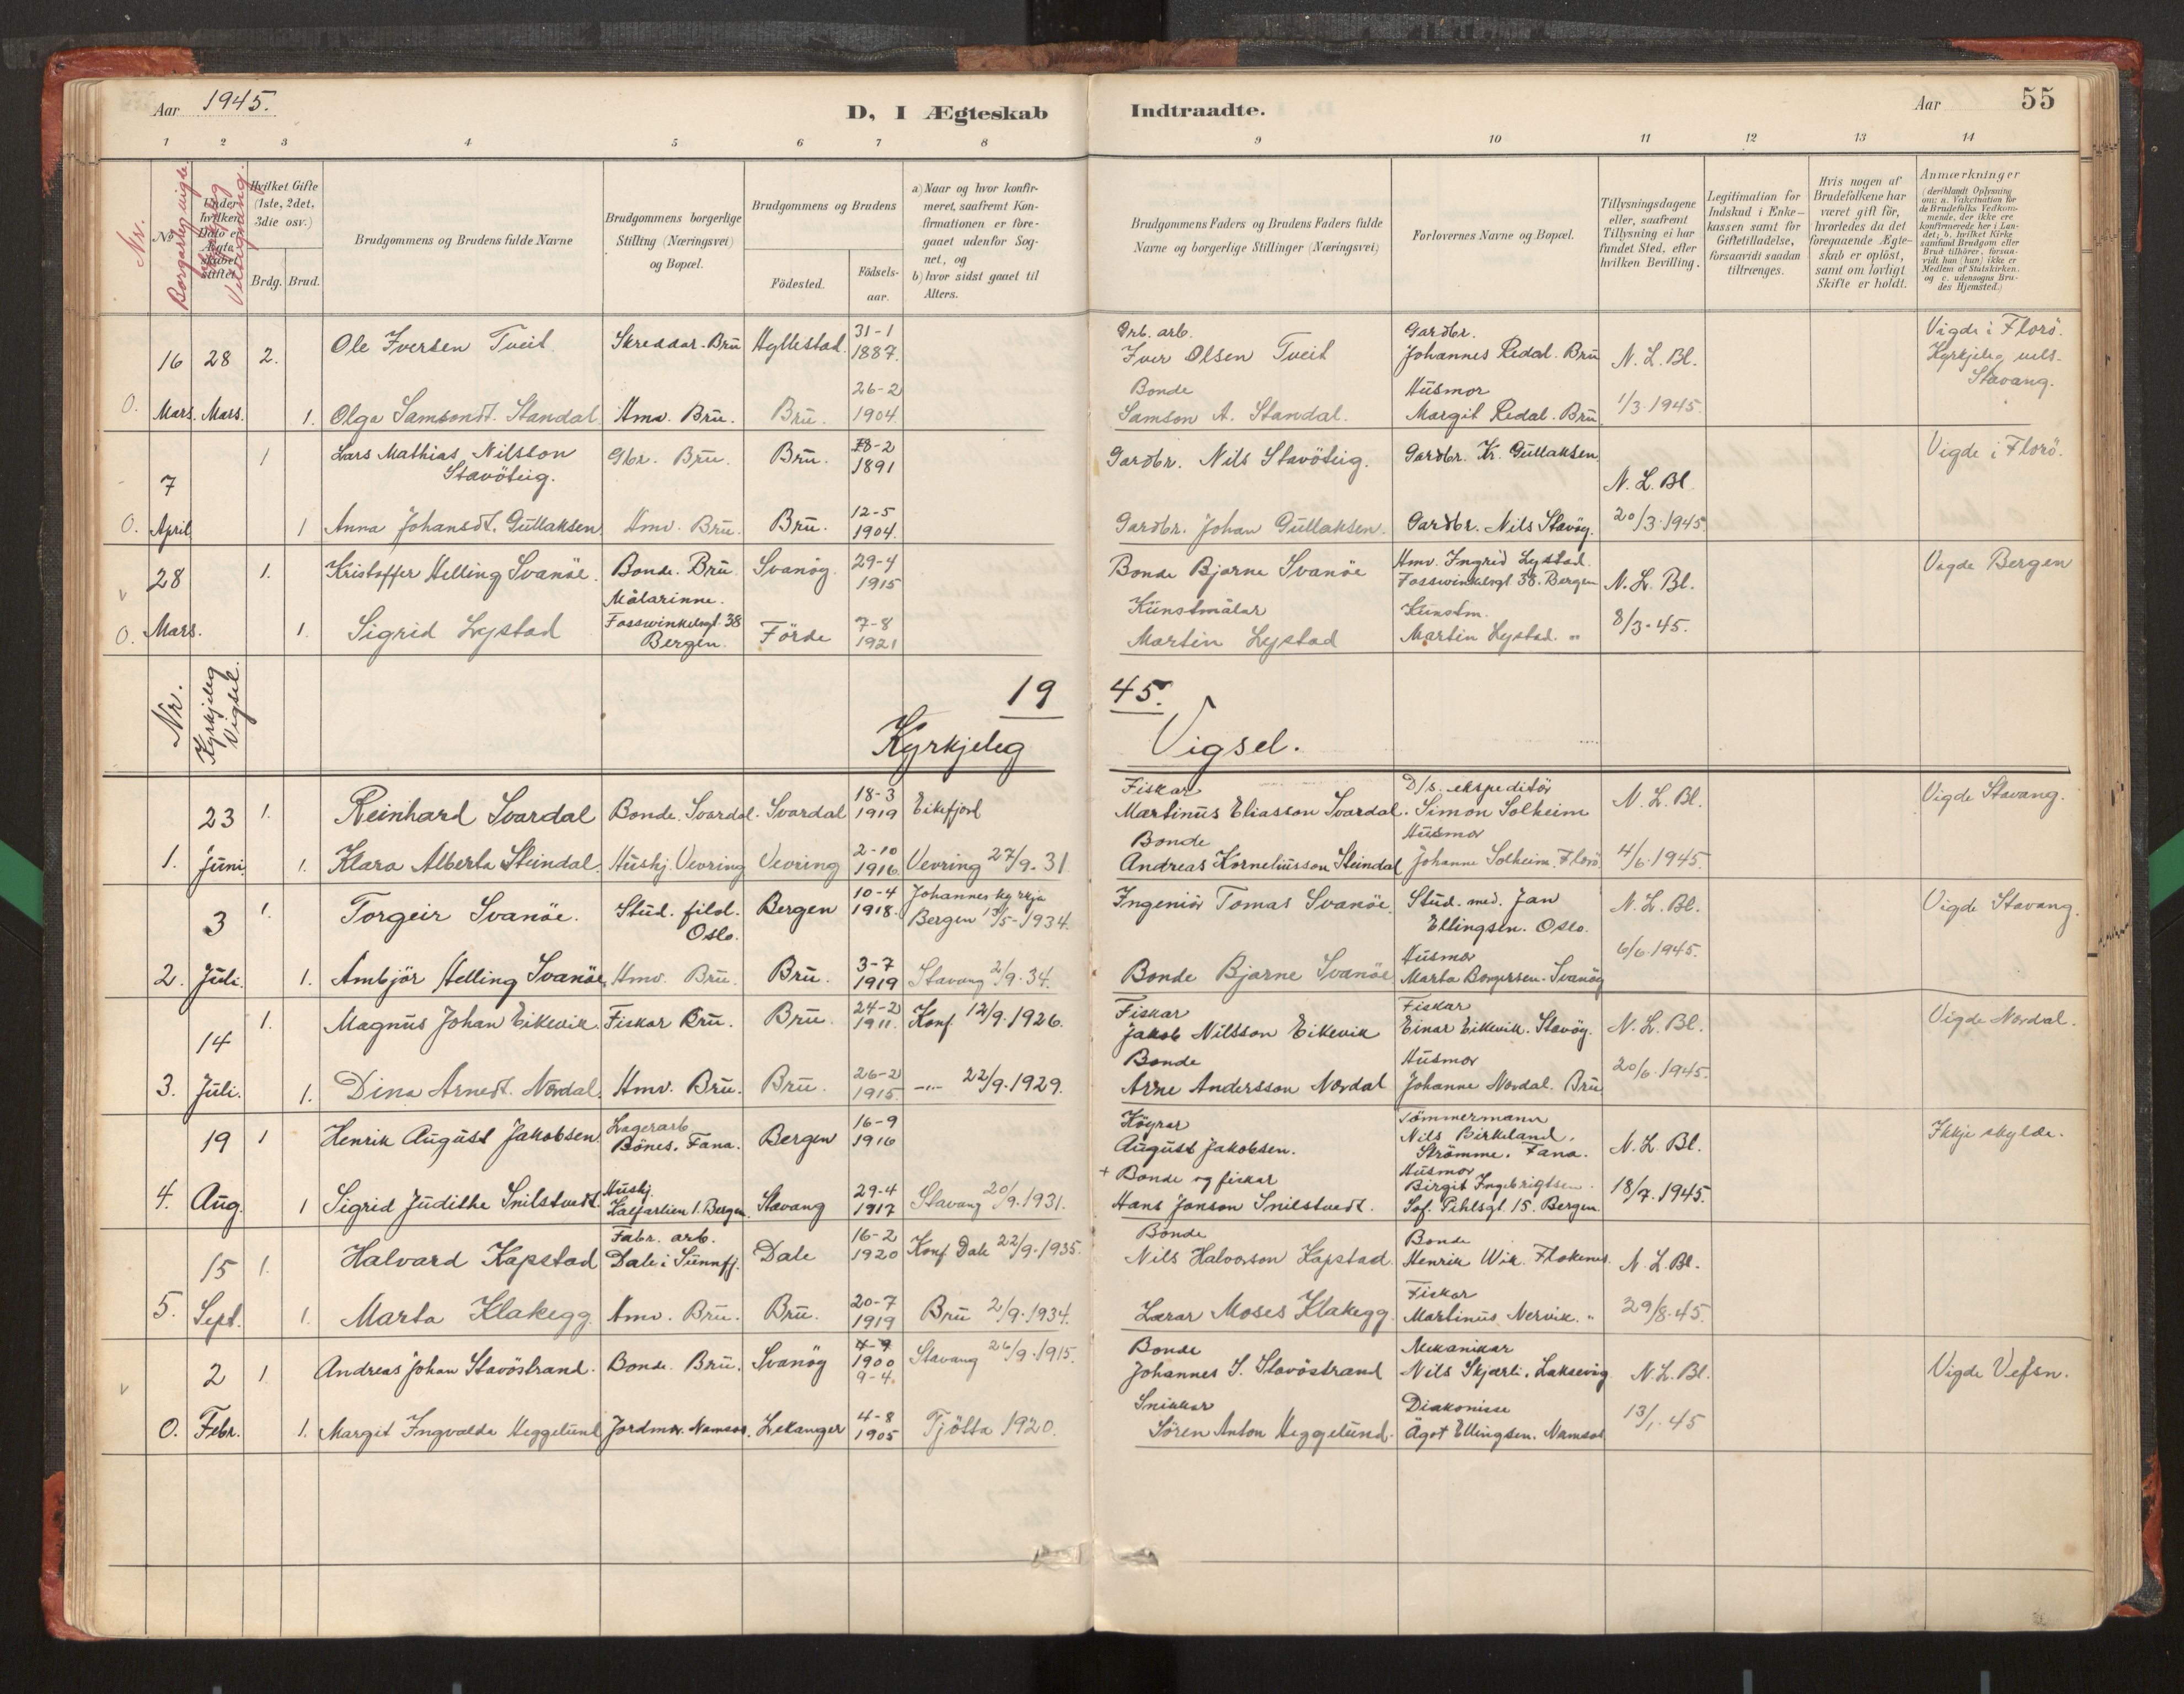 Aar 1945.
D, I Ægteskab Indtraadte.
Aar 55
1 2 3 4 5 6 7 8 9 10 11 12 13 14
Nr.
Borgarleg vigde
Kyrkjeleg
Velsigning
No
Under hvilken Dato er Ægteskabet stiftet.
Hvilket Gifte (1ste, 2det, 3die osv.)
Brdg. Brud.
Brudgommens og Brudens fulde Navne
Brudgommens borgerlige Stilling (Næringsvei) og Bopæl.
Brudgommens og Brudens
Födested. Födsels-aar.
a) Naar og hvor konfirmeret, saafremt Konfirmationen er foregaaet udenfor Sognet, og
b) hvor sidst gaaet til Alters.
Brudgommens Faders og Brudens Faders fulde Navne og borgerlige Stillinger (Næringsvei)
Forlovernes Navne og Bopæl.
Tillysningsdagene eller, saafremt Tillysning ei har fundet Sted, efter hvilken Bevilling.
Legitimation for Indskud i Enkekassen samt for Giftetilladelse, forsaavidt saadan tiltrænges.
Hvis nogen af Brudefolkene har været gift för, hvorledes da det foregaaende Ægteskab er oplöst, samt om lovligt Skifte er holdt.
Anmærkninger (deriblandt Oplysning om: a. Vakcination for de Brudefolks Vedkommende, der ikke ere konfirmerede her i Landet; b. hvilket Kirkesamfund Brudgom eller Brud tilhörer, forsaavidt han (hun) ikke er Medlem af Statskirken, og c. udensogns Brudes Hjemsted.)
16 28 2. Ole Iversen Tveit Skreddar. Brü Hyllestad 31-1 1887. Grb. arb. Iver Olsen Tveit Gardbr. Johannes Redal. Brü N. L. Bl. Vigde i Florö. Kyrkjeleg vels. Stavang.
0. Mars. Mars. 1. Olga Samsondt. Standal Hmv. Brü. Brü. 26-2 1904. Bonde Samson A. Standal. Hüsmor Margit Redal. Brü 1/3.1945.
7 1 Lars Mathias Nilsson Stavöteig. Gbr. Brü. Brü. 18-2 1891 Gardbr. Nils Stavöteig. Gardbr. Kr. Güllaksen N. L. Bl. Vigde i Florö.
0. April 1 Anna Johansdt. Güllaksen Hmv. Brü. Brü. 12-5 1904. Gardbr. Johan Güllaksen. Gardbr. Nils Stavöy. 20/3.1945
v 28 1. Kristoffer Helling Svanöe. Bonde. Brü Svanöy. 29-4 1915 Bonde Bjarne Svanöe Hmv. Ingrid Lystad. Fosswinkelsgt. 38. Bergen N. L. Bl. Vigde Bergen
0. Mars. 1. Sigrid Lystad Målarinne. Fosswinkelsgt. 38 Bergen. Förde 7-8 1921 Künstmålar Martin Lystad Künstm. Martin Lystad. " 8/3-45.
Nr.
Kyrkjeleg Vigsel.
19 45.
Kyrkjeleg Vigsel.
23 1. Reinhard Svardal Bonde. Svardal. Svardal 18-3 1919 Eikefjord Fiskar Martinüs Eliasson Svardal. D/s. ekspeditör Simon Solheim N. L. Bl. Vigde Stavang.
1. Juni. 1. Klara Alberta Steindal. Hüshj. Vevring Vevring 2-10 1916. Vevring 27/9-31 Bonde Andreas Korneliüsson Steindal Hüsmor Johanne Solheim. Florö 4/6.1945.
3 1. Torgeir Svanöe. Stüd. filol. Oslo. Bergen 10-4 1918. Johanneskyrkja Bergen 13/5-1934. Ingeniör Tomas Svanöe. Stüd. med. Jan Ellingsen. Oslo. N. L. Bl. Vigde Stavang.
2. Jüli. 1. Ambjör Helling Svanöe Hmv. Brü. Brü. 3-7 1919 Stavang 2/9.34. Bonde Bjarne Svanöe Hüsmor Marta Borgersen. Svanöy 6/6.1945.
14 1. Magnüs Johan Eikevik. Fiskar Brü. Brü. 24-2 1911. Konf. 12/9.1926. Fiskar Jakob Nilsson Eikevik Fiskar Einar Eikevik. Stavöy. N. L. Bl. Vigde Nordal.
3. Jüli. 1. Dina Arnedt. Nordal. Hmv. Brü. Brü. 26-2 1915. —"— 22/9.1929. Bonde Arne Andersson Nordal Hüsmor Johanne Nordal. Brü 20/6.1945.
19 1 Henrik Aügüst Jakobsen. Lagerarb. Bönes. Fana. Bergen 16-9 1916 Köyrar Aügüst Jakobsen. Tömmermann Nils Birkeland. Strömme. Fana. N. L. Bl. Ikkje skylde.
4. Aüg. 1 Sigrid Jüdithe Snilstvedt. Hüshj. Kalfarlien 1. Bergen. Stavang 29-4 1917 Stavang 20/9.1931. + Bonde og fiskar Hans Jonson Snilstvedt. Hüsmor Birgit Ingebrigtsen. Sof. Pihlsgt. 15. Bergen 18/7.1945.
15 1. Halvard Kapstad Fabr. arb. Dale i Sünnfj. Dale 16-2 1920 Konf. Dale 22/9.1935. Bonde Nils Halvorson Kapstad. Bonde Henrik Wik. Flokenes. N. L. Bl.
5. Sept. 1. Marta Klakegg. Hmv. Brü. Brü. 20-7 1919 Brü 2/9.1934. Lærar Moses Klakegg. Fiskar Martinüs Nervik. " 29/8.45.
v 2 1. Andreas Johan Stavöstrand. Bonde. Brü. Svanöy 4-9 1900 9-4. Stavang 26/9.1915. Bonde Johannes S. Stavöstrand Mekanikar Nils Skjærli. Laksevåg N. L. Bl. Vigde Vefsn.
0. Febr. 1. Margit Ingvalda Heggelünd Jordmor. Namsos. Lekanger 4-8 1905 Tjötta 1920. Snikkar Sören Anton Heggelünd. Diakonisse Ågot Ellingsen. Namsos 13/1.45